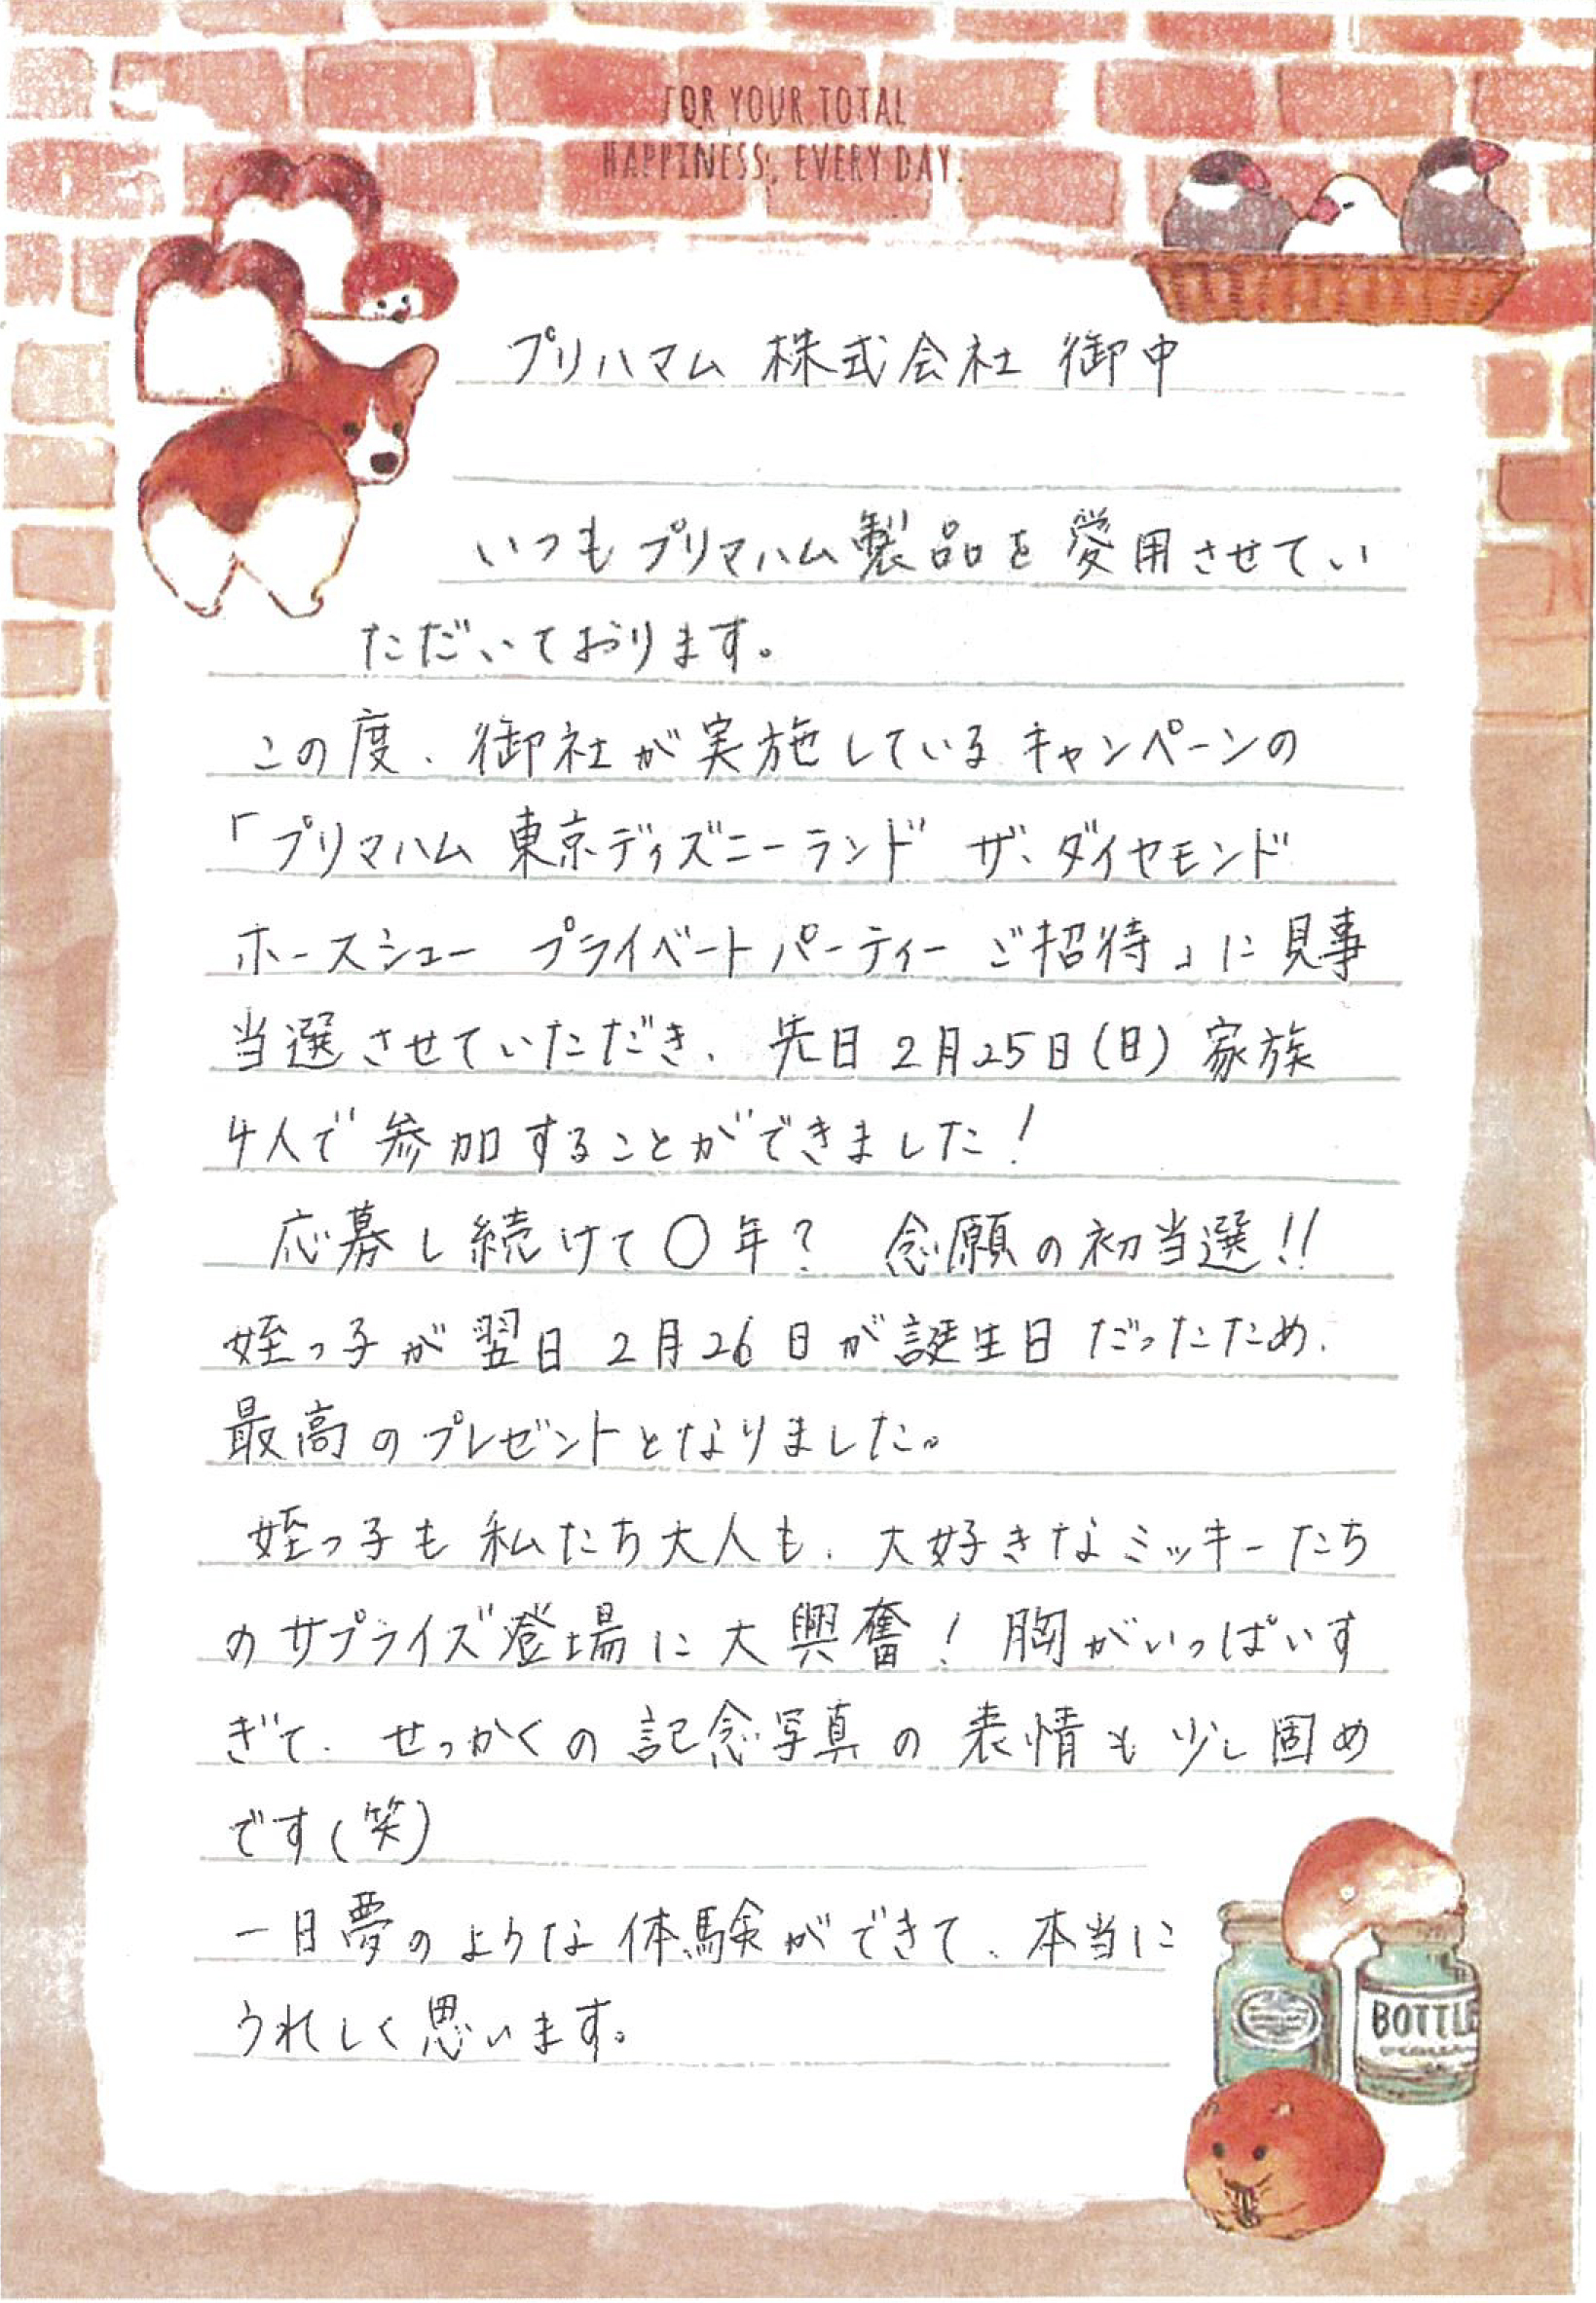 FOR YOUR TOTAL
HAPPINESS, EVERY DAY.
プリハマム 株式会社 御中
いつもプリマハム製品を愛用させてい
ただいております。
この度、御社が実施しているキャンペーンの
「プリマハム 東京ディズニーランド ザ・ダイヤモンド
ホースシュー プライベートパーティー ご招待」に見事
当選させていただき、先日2月25日(日)家族
4人で参加することができました!
応募し続けて〇年? 念願の初当選!!
姪っ子が翌日2月26日が誕生日だったため、
最高のプレゼントとなりました。
姪っ子も私たち大人も、大好きなミッキーたち
のサプライズ登場に大興奮!胸がいっぱいす
ぎて、せっかくの記念写真の表情も少し固め
です(笑)
一日夢のような体験ができて、本当に
うれしく思います。
BOTTLE